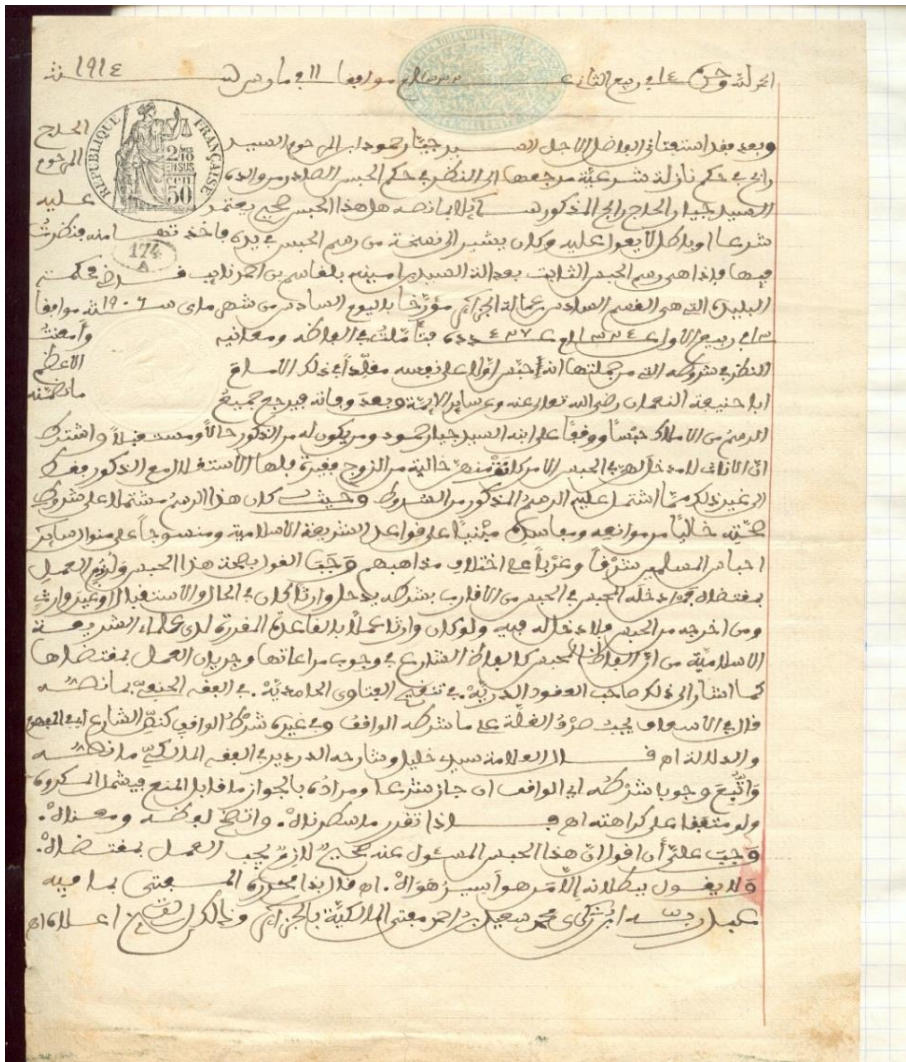 الحمد لله وحده ١٤ في ربيع الثاني عـ ١٣٣٢ ـام موافقا ١١ في مارس سنة ١٩١٤
REPUBLIQUE FRANÇAISE
2/10 EN SUS
50
174
A
وبعد فقد استفتاني الفاضل الاجل السيد جيار حمود ابن المرحوم السيد الحاج
رابح في حكم نازلة شرعية مرجعها الى النظر في حكم الحبس الصادر من والده المرحوم
السيد جيار الحاج رابح المذكور سائلا بما نصه هل هذا الحبس صحيح يعتمد عليه
شرعا او باطل لا يعول عليه وكان يشير الى نسخة من رسم الحبس في يده فاخذتها منه فنظرت
فيها فاذا هي رسم الحبس الثابت بعدالة السيد بلقاسم بن احمد نايب قـاضي محكمة
البليدة التي هي القسم السادس من عمالة الجزائر مؤرخا باليوم السادس من شهر ماي سنة ١٩٠٦ موافقا
في ربيع الاول عـ ١٣٢٤ ـام عدده ٤٣٧ فتأملت في الفاظه ومعانيه وأمعنت
النظر في شروطه التي من جملتها انه حبس اولا على نفسه مقلدا في ذلك الامام الاعظم
ابا حنيفة النعمان رضي الله تعالى عنه وعن ساير الايمة وبعد وفاته فيرجع جميع ما تضمنه
الرسم من الاملاك حبسا ووقفا على ابنه السيد جيار حمود ومن يكون له من الذكور حالا ومستقبلا واشترط
ان الاناث لا مدخل لهن في الحبس الا من كانت منهن خالية من الزوج فقيرة فلها الاستغلال مع الذكور فقط
الى غير ذلك مما اشتمل عليه الرسم المذكور من الشروط وحيث كان هذا الرسم مشتملا على شروط
صحته خاليا من موانعه ومفاسده مبنيا على قواعد الشريعة الاسلامية ومنسوجا على منوال ساير
احباس المسلمين شرقا وغربا على اختلاف مذاهبهم وجب القول بصحة هذا الحبس ولزوم العمل
بمقتضاه فمن ادخله المحبس في الحبس من الاقارب بشرطه يدخل وارثا كان في الحال او الاستقبال او غير وارث
ومن اخرجه من الحبس فلا دخل له فيه ولو كان وارثا عملا بالقاعدة المقررة لدى علماء الشريعة
الاسلامية من ان الفاظ المحبس كالفاظ الشارع في وجوب مراعاتها وجريان العمل بمقتضاها
كما اشار الى ذلك صاحب العقود الدرية في تنقيح الفتاوى الحامدية في الفقه الحنفي بما نصه
قال في الاسعاف يجب صرف الغلة على ما شرطه الواقف وفي غيره شرط الواقف كنص الشارع اي في الفهم
والدلالة اه قـال العلامة سيدي خليل وشارحه الدردير في الفقه المالكي ما نصه
واتبع وجوبا شرطه اي الواقف ان جاز شرعا ومراده بالجواز ما قابل المنع فيشمل المكروه
ولو متفقا على كراهته اه فـاذا تقرر ما سطرناه واتضح لفظه ومعناه
وجب علي أن اقول ان هذا الحبس المسئول عنه صحيح لازم يجب العمل بمقتضاه
ولا يقول ببطلانه الا من هو أسير هواه اه قال هذا محرره المفتي بما فيه
عبيد ربه ابن زكري محمد سعيد بن احمد مفتي المالكية بالجزائر وذلك بتاريخ اعلاه اه